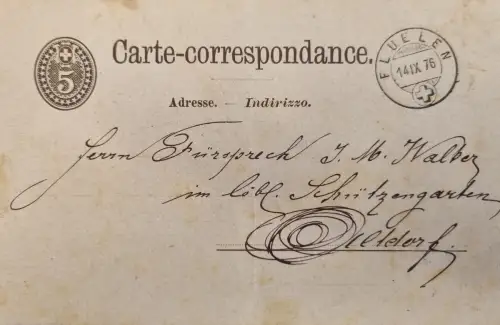 5
Carte-correspondance.
FLUELEN
14 IX 76
Adresse. — Indirizzo.
Herrn Fürsprech J. M. Walker
im löbl. Schützengarten
Altdorf.